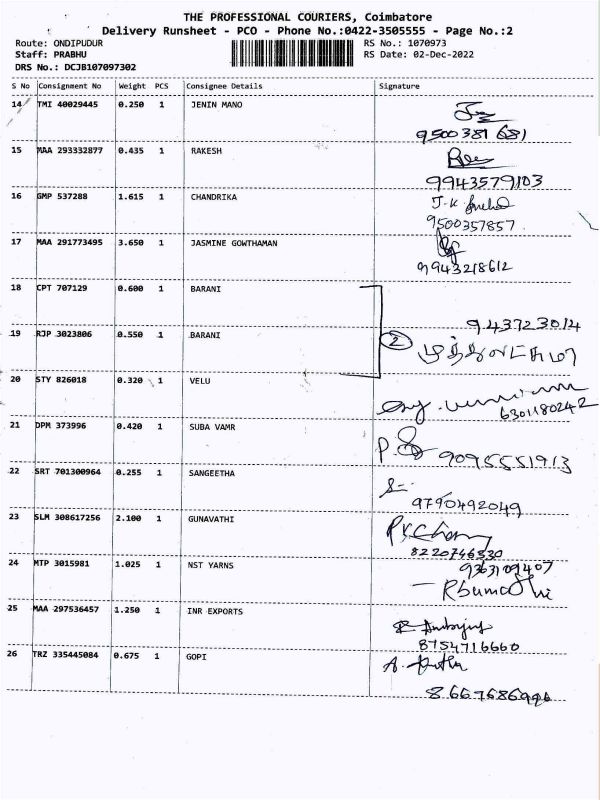 THE PROFESSIONAL COURIERS, Coimbatore
Delivery Runsheet - PCO - Phone No.:0422-3505555 - Page No.:2
Route: ONDIPUDUR
RS No.: 1070973
Staff: PRABHU
RS Date: 02-Dec-2022
DRS No.: DCJB107097302
S No Consignment No Weight PCS Consignee Details Signature
14 TMI 40029445 0.250 1 JENIN MANO
9500381681
15 MAA 293332877 0.435 1 RAKESH
9943579103
16 GMP 537288 1.615 1 CHANDRIKA
9500357857
17 MAA 291773495 3.650 1 JASMINE GOWTHAMAN
9943218612
18 CPT 707129 0.600 1 BARANI
943723014
19 RJP 3023806 0.550 1 BARANI
2
20 STY 826018 0.320 1 VELU
6301180242
21 DPM 373996 0.420 1 SUBA VAMR
9095551913
22 SRT 701300964 0.255 1 SANGEETHA
9790492049
23 SLM 308617256 2.100 1 GUNAVATHI
8220746530
24 MTP 3015981 1.025 1 NST YARNS
9363109407
25 MAA 297536457 1.250 1 INR EXPORTS
8754716660
26 TRZ 335445084 0.675 1 GOPI